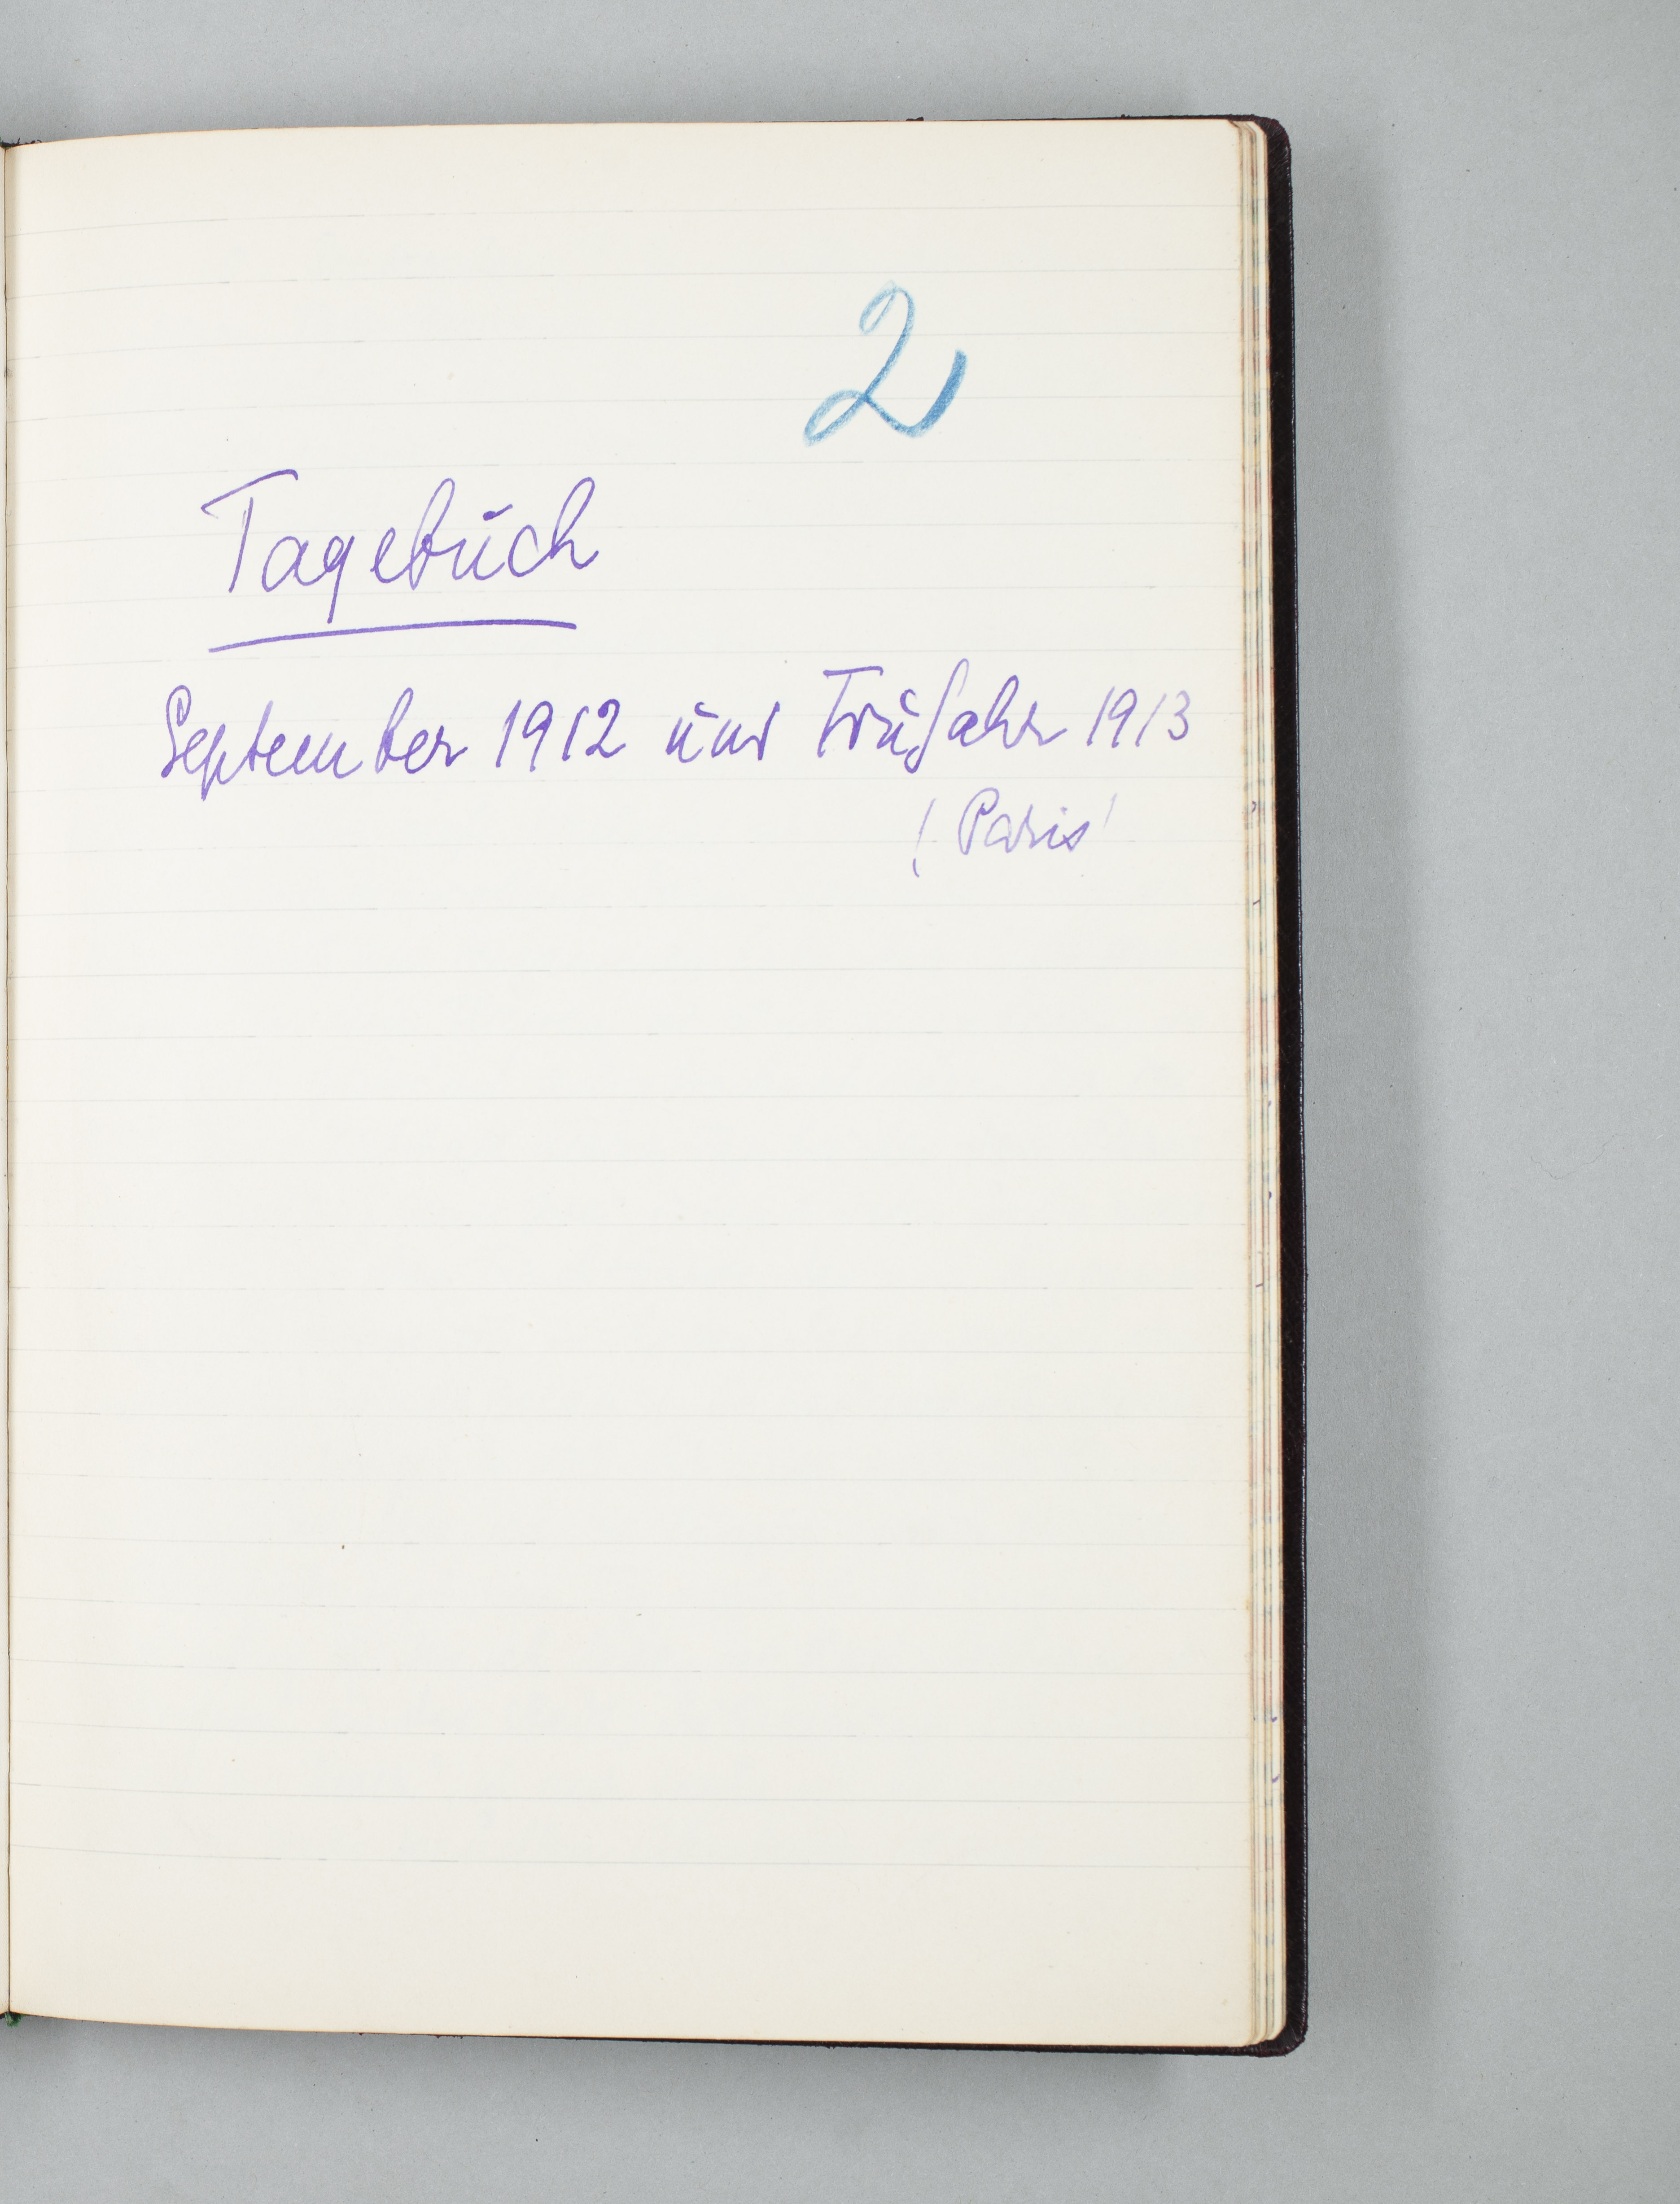 2
Tagebuch
September 1912 und Frühjahr 1913
(Paris)